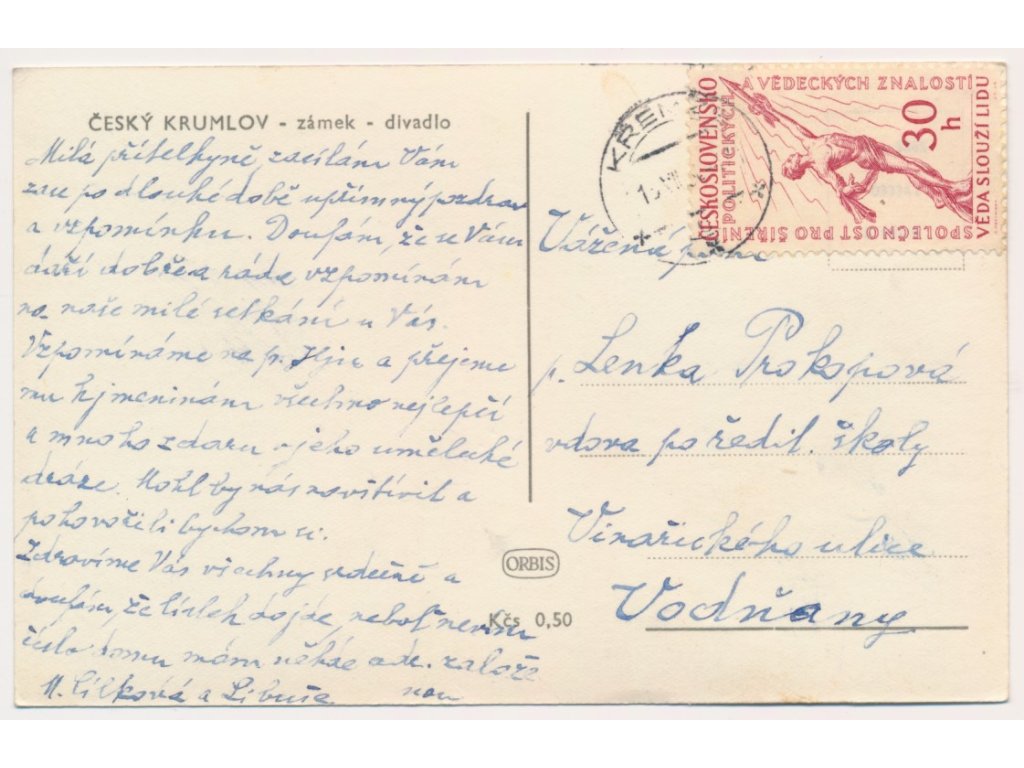 ČESKÝ KRUMLOV - zámek - divadlo
Milá přítelkyně, zasílám Vám
zas po dlouhé době upřímný pozdrav
a vzpomínku. Doufám, že se Vám
daří dobře a ráda vzpomínám
na naše milé setkání u Vás.
Vzpomínáme na p. a přejeme
mu k jmeninám všechno nejlepší
a mnoho zdaru v jeho umělecké
dráze. Mohl by nás navštívit a
pohovořili bychom si.
Zdravíme Vás všechny srdečně a
doufám, že lístek dojde, neboť nevím
číslo domu mám někde adr. založe
nou
M. Lílková a Libuše
ORBIS
Kčs 0,50
KŘEM
ČESKOSLOVENSKO
SPOLEČNOST PRO ŠÍŘENÍ
POLITICKÝCH
A VĚDECKÝCH ZNALOSTÍ
VĚDA SLOUŽÍ LIDU
30 h
Vážená paní
p. Lenka Prokopová
vdova po ředit. školy
Vinařického ulice
Vodňany